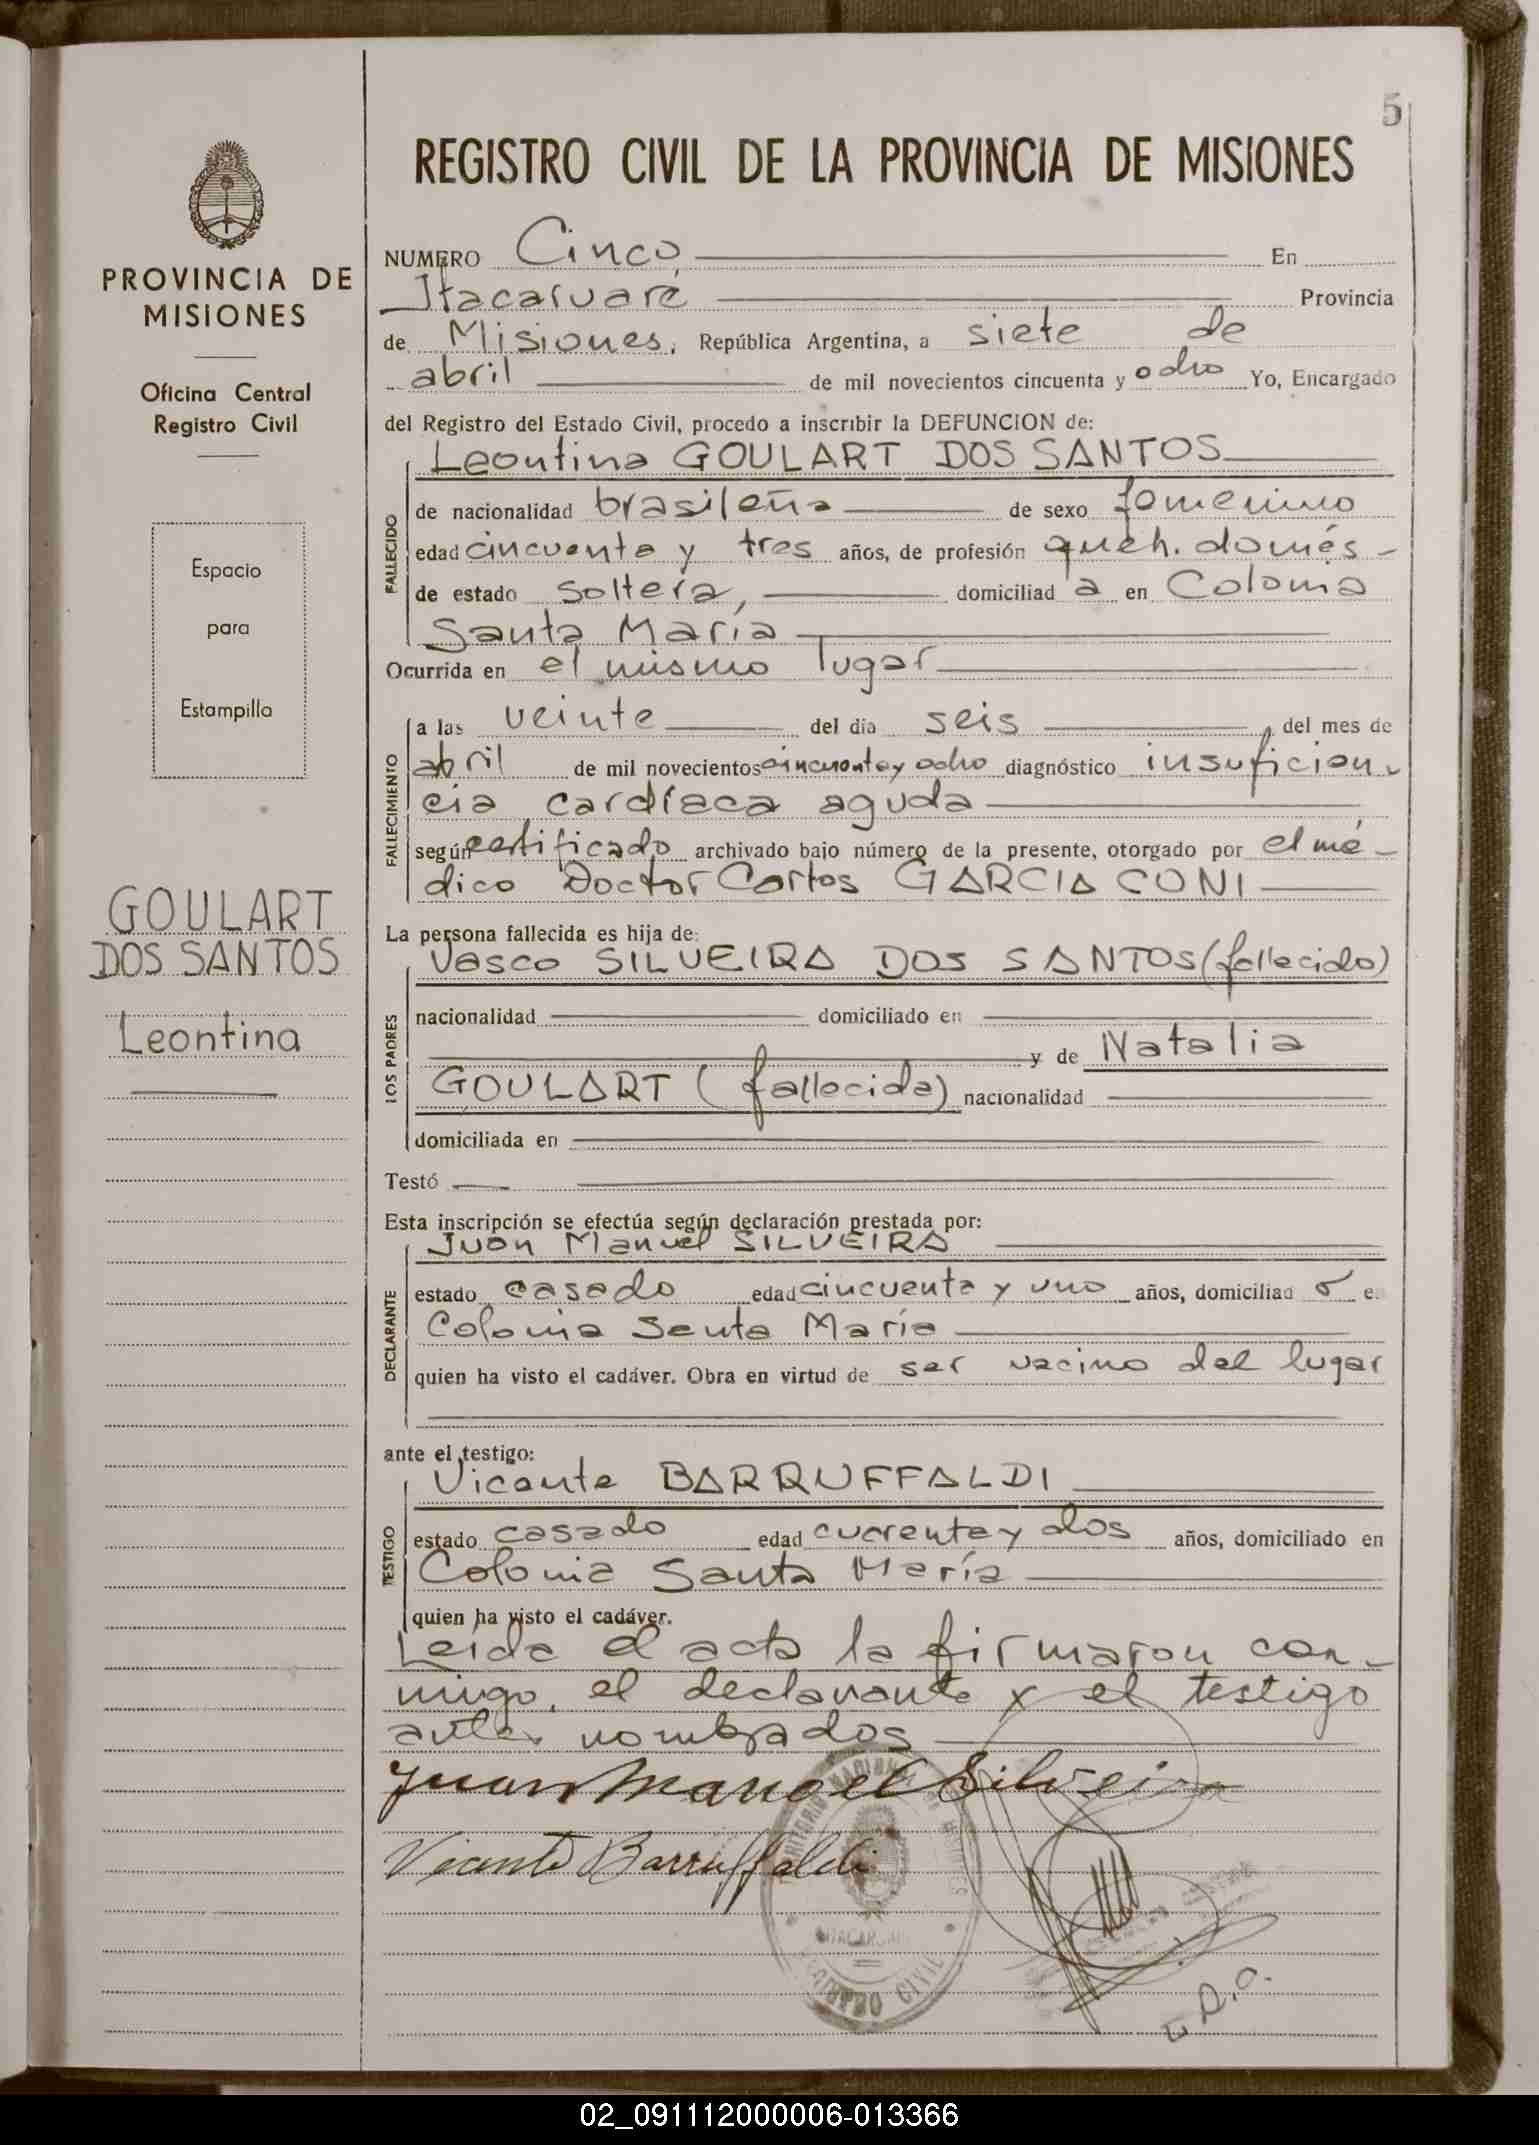 5
REGISTRO CIVIL DE LA PROVINCIA DE MISIONES
PROVINCIA DE
MISIONES
Oficina Central
Registro Civil
Espacio
para
Estampilla
GOULART
DOS SANTOS
Leontina
NUMERO Cinco En
Itacaruaré Provincia
de Misiones, República Argentina, a siete de
abril de mil novecientos cincuenta y ocho Yo, Encargado
del Registro del Estado Civil, procedo a inscribir la DEFUNCION de:
FALLECIDO
Leontina GOULART DOS SANTOS
de nacionalidad brasileña de sexo femenino
edad cincuenta y tres años, de profesión queh. domés-
de estado soltera, domiciliad a en Colonia
Santa María
Ocurrida en el mismo lugar
FALLECIMIENTO
a las veinte del día seis, del mes de
abril de mil novecientos cincuenta y ocho diagnóstico insuficien-
cia cardíaca aguda
según certificado archivado bajo número de la presente, otorgado por el mé-
dico Doctor Carlos GARCIA CONI
La persona fallecida es hija de:
LOS PADRES
Vasco SILVEIRA DOS SANTOS (fallecido)
nacionalidad domiciliado en
y de Natalia
GOULART (fallecida) nacionalidad
domiciliada en
Testó
Esta inscripción se efectúa según declaración prestada por:
DECLARANTE
Juan Manuel SILVEIRA
estado casado edad cincuenta y uno años, domiciliad o e
Colonia Santa María
quien ha visto el cadáver. Obra en virtud de ser vecino del lugar
ante el testigo:
TESTIGO
Vicente BARRUFFALDI
estado casado edad cuarenta y dos años, domiciliado en
Colonia Santa María
quien ha visto el cadáver.
Leida el acta la firmaron con-
migo, el declarante y el testigo
antes nombrados
Juan Manoel Silveira
Vicente Barruffaldi
REGISTRO CIVIL
02_091112000006-013366